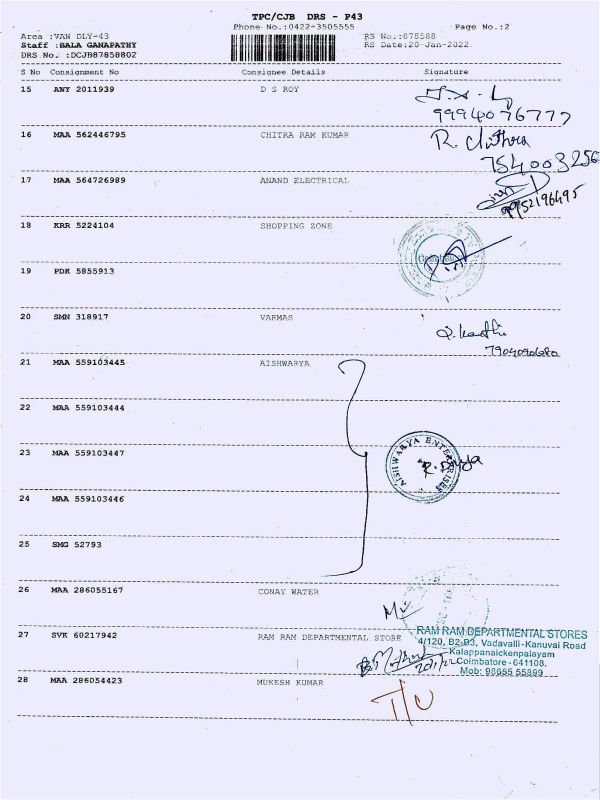 TPC/CJB DRS - P43
Phone No.:0422-3505555 Page No.:2
Area :VAN DLY-43 RS No.:878588
Staff :BALA GANAPATHY RS Date:20-Jan-2022
DRS No. :DCJB87858802
S No Consignment No Consignee Details Signature
15 AWY 2011939 D S ROY
9994076777
16 MAA 562446795 CHITRA RAM KUMAR R. Chithra
754003256
17 MAA 564726989 ANAND ELECTRICAL
9952196495
18 KRR 5224104 SHOPPING ZONE
19 PDK 5855913
20 SMN 318917 VARMAS
7904090680
21 MAA 559103445 AISHWARYA
22 MAA 559103444
23 MAA 559103447 AISHWARYA ENTERPRISES
R. Divya
24 MAA 559103446
25 SMG 52793
26 MAA 286055167 CONAY WATER
27 SVK 60217942 RAM RAM DEPARTMENTAL STORE
RAM RAM DEPARTMENTAL STORES
4/120, B2-B3, Vadavalli-Kanuvai Road
Kalappanaickenpalayam
Coimbatore - 641108.
Mob: 98655 55899
28 MAA 286054423 MUKESH KUMAR